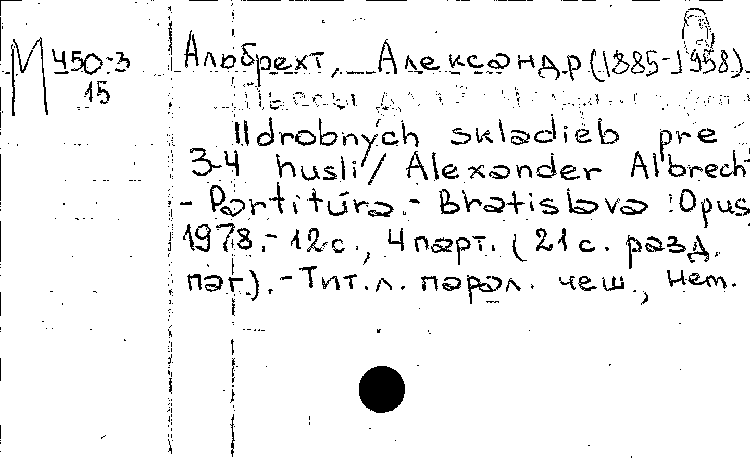 М 450-3
15
Альбрехт, Александр (1885-1958).
Пьесы для
11 drobnych skladieb pre
3-4 huslí / Alexander Albrech
- Partitúra.- Bratislava : Opus,
1978.- 12 с., 4 парт. ( 21 с. разд.
паг.). - Тит. л. парал. чеш., нем.